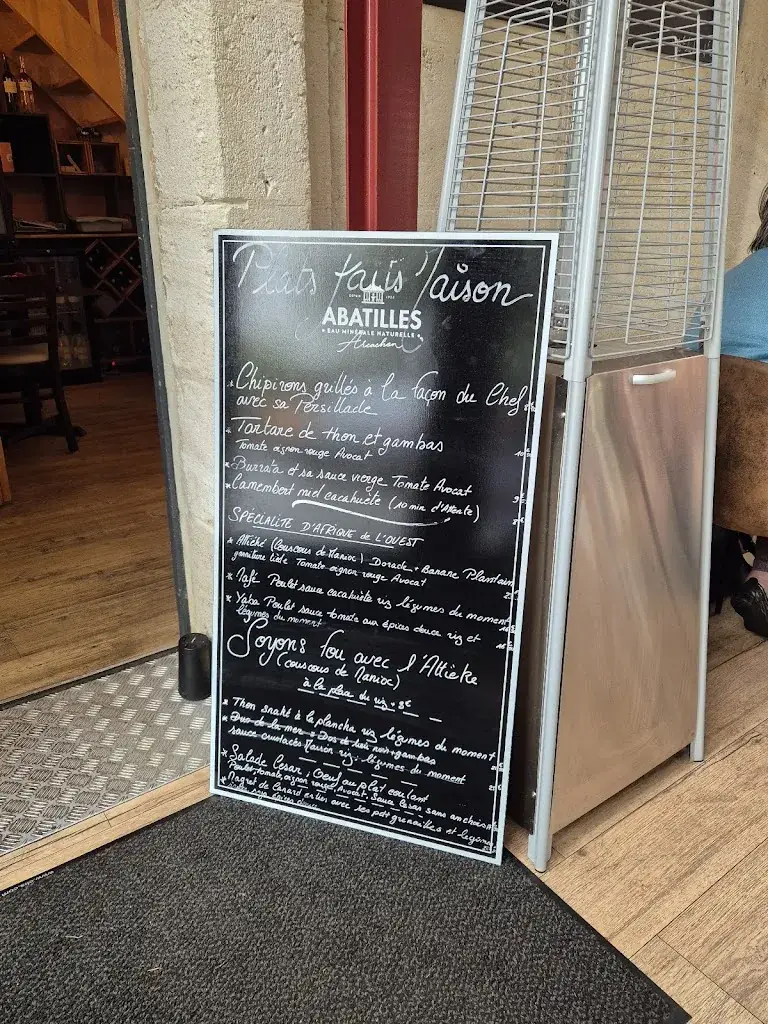 Plats faits Maison
DEPUIS 1925
ABATILLES
EAU MINÉRALE NATURELLE
Arcachon
* Chipirons grillés à la façon du Chef
avec sa Persillade
* Tartare de thon et gambas
Tomate oignon rouge Avocat
* Burrata et sa sauce vierge Tomate Avocat
* Camembert miel cacahuète (10 min d'Attente)
SPÉCIALITÉ D'AFRIQUE de L'OUEST
* Attiéké (Couscous de Manioc) Dorade + Banane Plantain
garniture tiède Tomate oignon rouge Avocat
* Mafé Poulet sauce cacahuète riz légumes du moment
* Yassa Poulet sauce tomate aux épices douce riz et
légumes du moment
Soyons fou avec l'Attièke
(couscous de Manioc)
à la place du riz + 3€
* Thon snaké à la plancha riz légumes du moment
* Duo de la mer = Dos de lieu noir + gambas
sauce crustacés Maison riz légumes du moment
* Salade Cesar, Oeuf au plat coulant
Poulet, tomate, oignon rouge, Avocat, Sauce Cesar sans anchois
* Magret de Canard entier avec ses petit grenailles et légumes